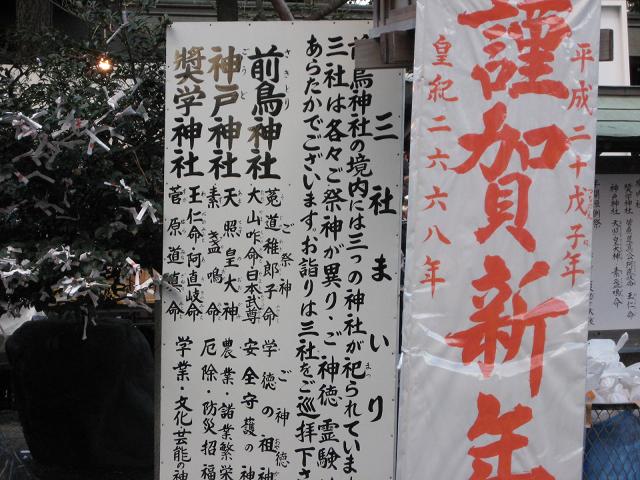 謹賀新年
平成二十戊子年
皇紀二六六八年
三社まいり
前鳥神社の境内には三つの神社が祀られていま
三社は各々ご祭神が異り、ご神徳、霊験
あらたかでございます。お詣りは三社をご巡拝下さ
ご祭神
ご神徳
前鳥神社
さきとり
菟道稚郎子命
学徳の祖神
大山咋命 日本武尊
安全守護の神
神戸神社
ごうど
天照皇大神
農業・諸業繁栄
素盞鳴命
厄除・防災招福
奨学神社
王仁命・阿直岐命
学業・文化芸能の神
菅原道真命